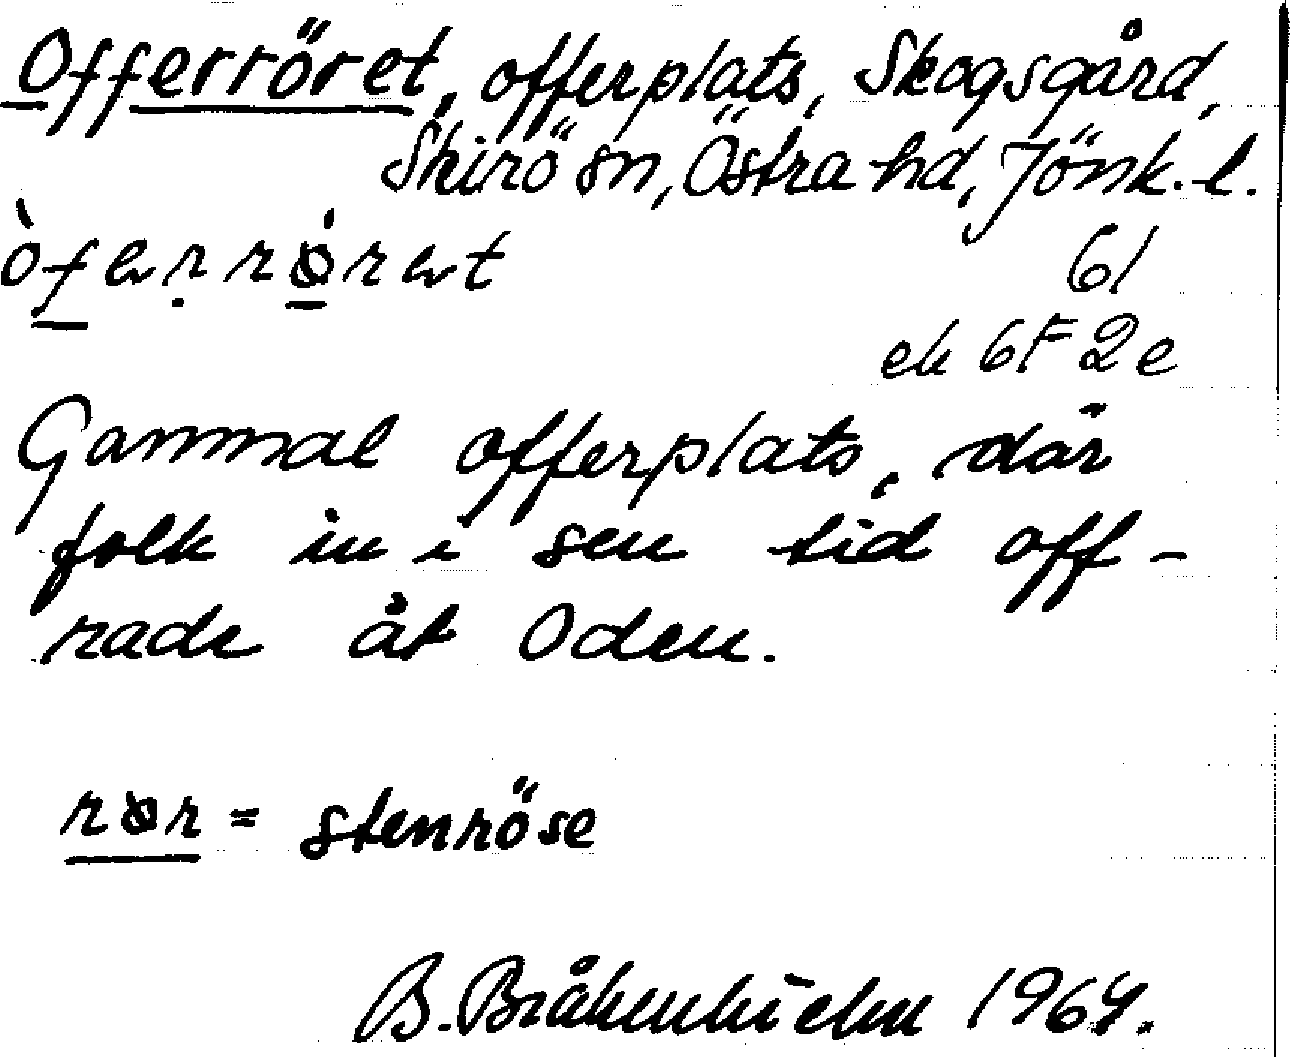 Offerröret, offerplats, Skogsgård,
Skirö sn, Östra hd, Jönk. l.
61
ek 6F 2e
Gammal offerplats, där
folk in i sen tid off-
rade åt Oden.
= stenröse
B. 1964.